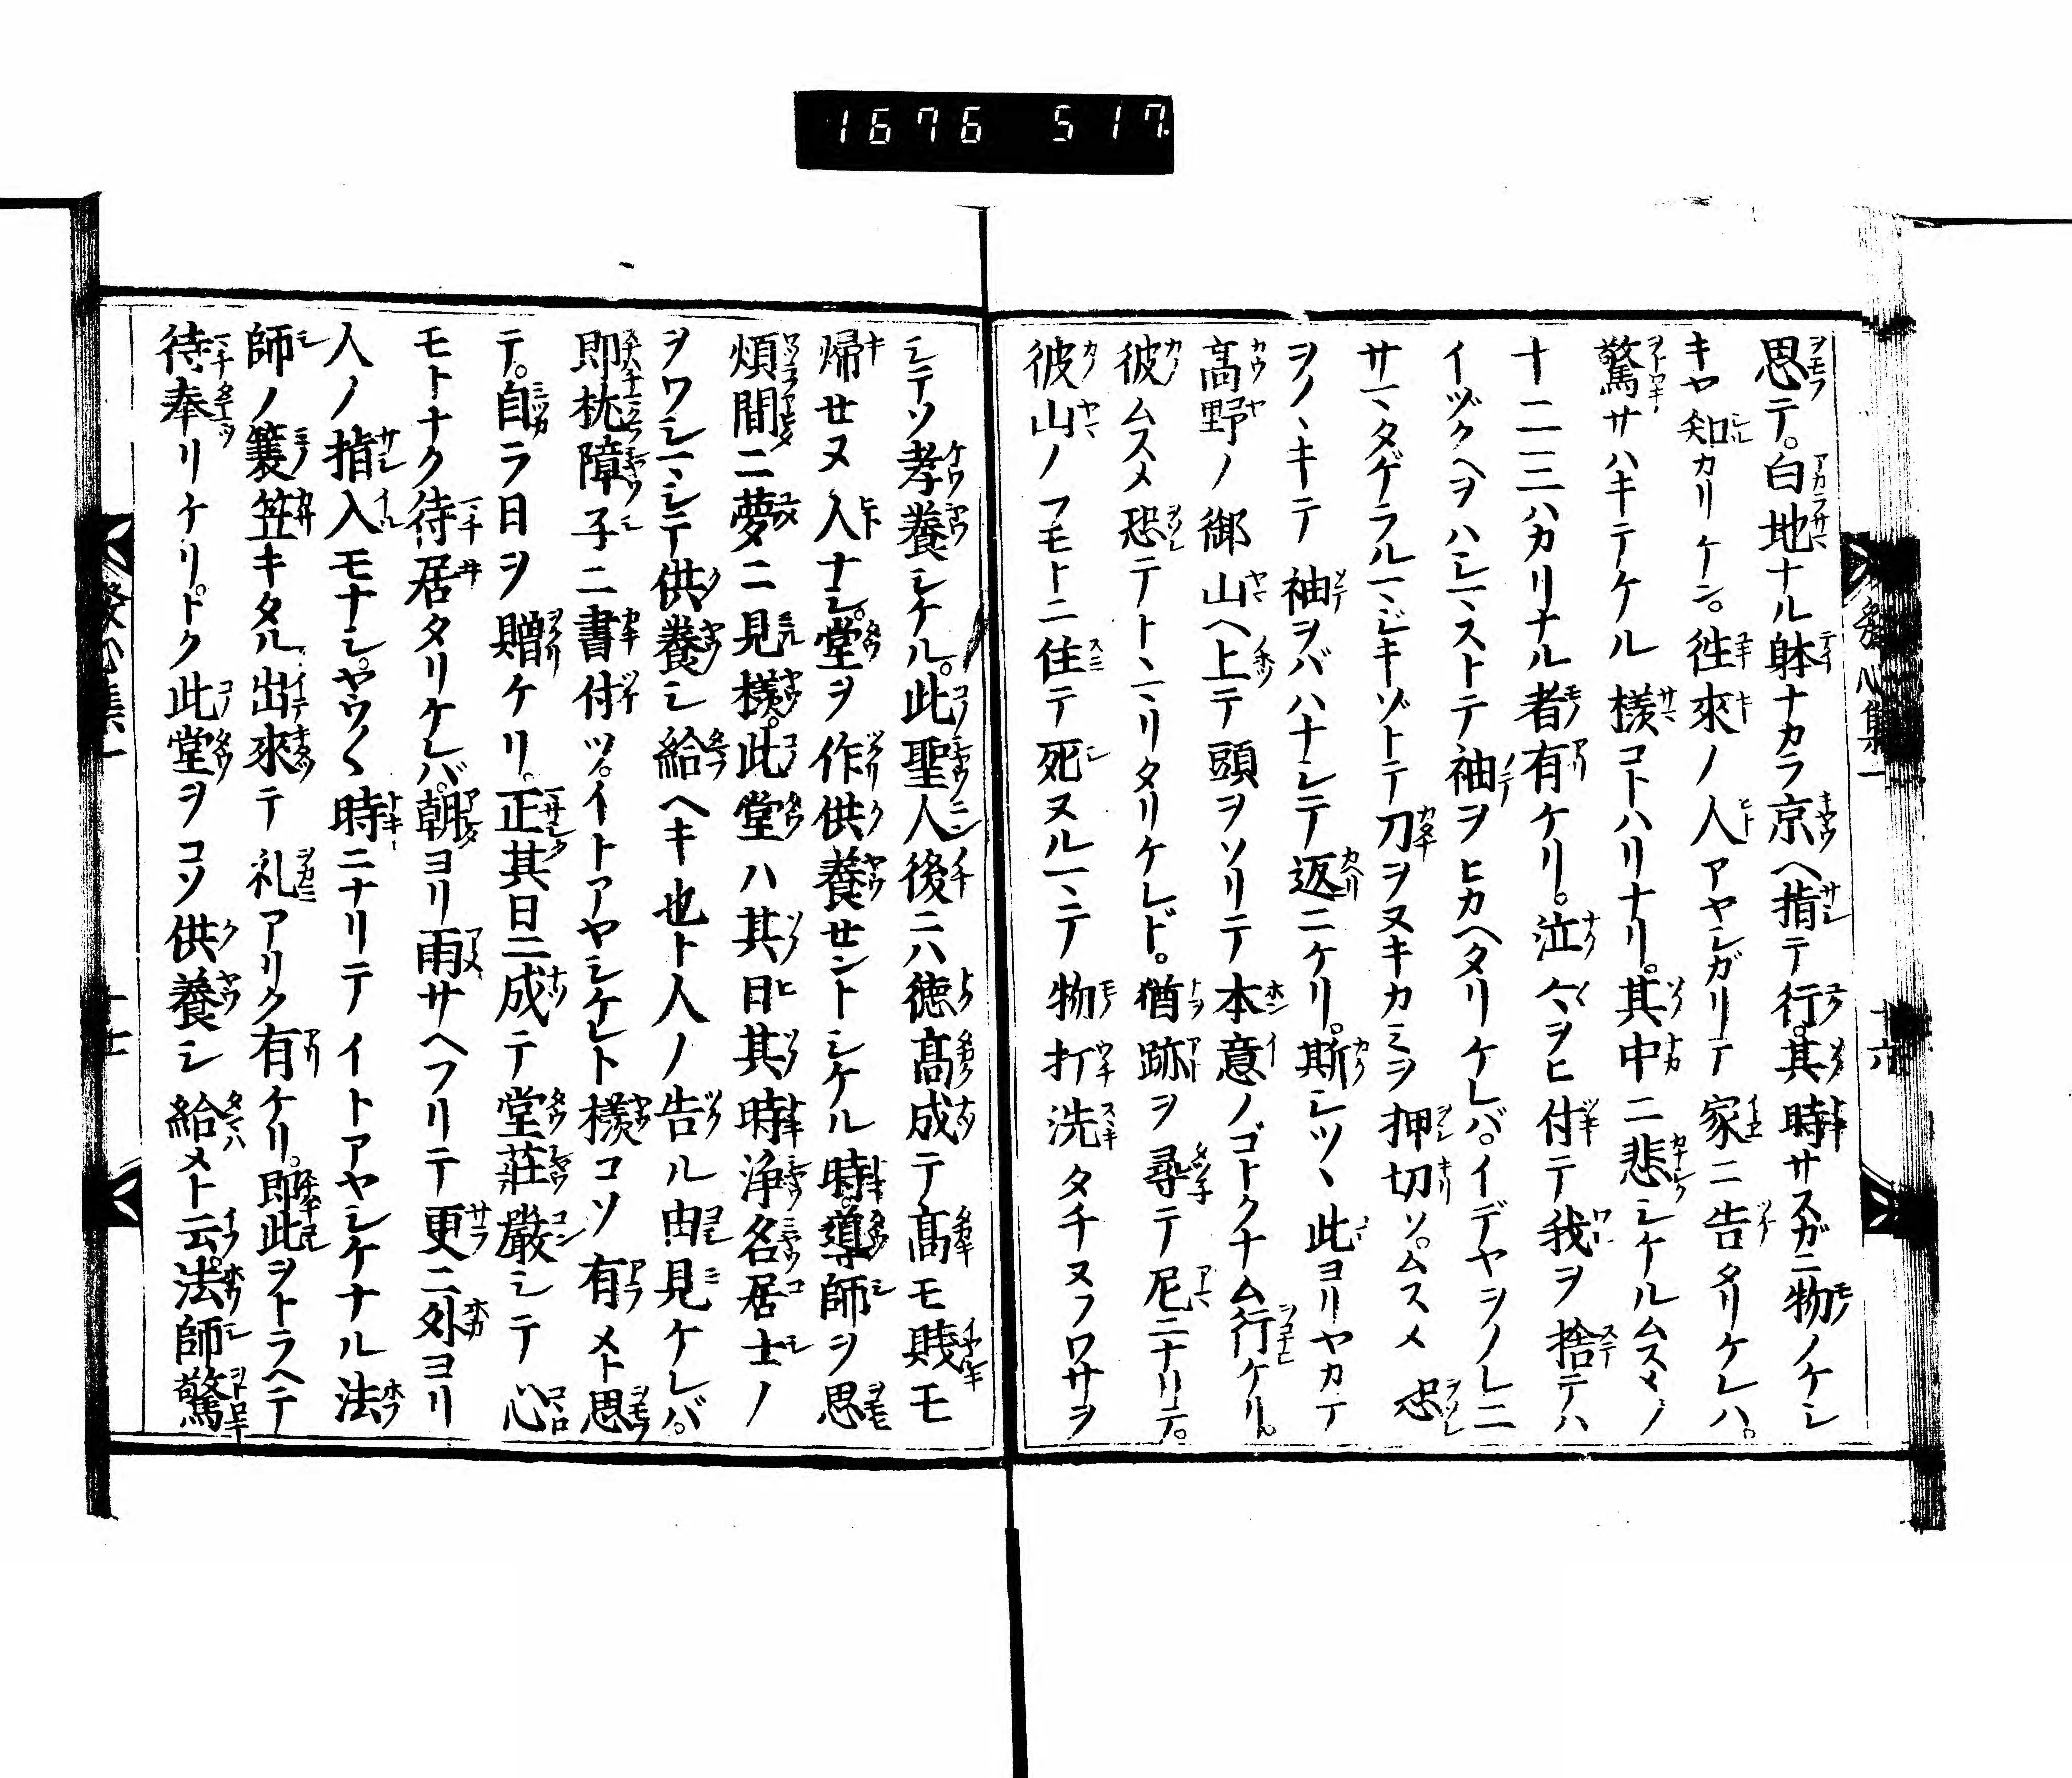 1676 517.
思テ。白地ナル躰ナカラ京ヘ指テ行。其時サスガニ物ノケシ
キヤ知カリケン。徃來ノ人アヤシガリテ家ニ告タリケレハ。
驚サハキテケル樣コトハリナリ。其中ニ悲シケルムスメノ
十二三ハカリナル者有ケリ。泣々ヲヒ付テ我ヲ捨テハ
イヅクヘヲハシマストテ袖ヲヒカヘタリケレバ。イデヤヲノレニ
サマタゲラルマジキゾトテ刀ヲヌキカミヲ押切ソ。ムスメ恐
ヲノヽキテ袖ヲバハナシテ返ニケリ。斯シツヽ此ヨリヤカテ
髙野ノ御山ヘ上テ頭ヲソリテ本意ノゴトクナム行ケリ。
彼ムスメ恐テトヽマリタリケレド。猶跡ヲ尋テ尼ニナリテ。
彼山ノフモトニ住テ死ヌルマテ物打洗タチヌフワサヲ
シテソ孝養シケル。此聖人後ニハ徳髙成テ髙モ賎モ
帰せヌ人ナシ。堂ヲ作供養せントシケル時。導師ヲ思
煩間ニ夢ニ見樣。此堂ハ其日其時浄名居士ノ
ヲワシマシテ供養シ給ヘキ也ト人ノ告ル由見ケレバ。
即枕障子ニ書付ツ。イトアヤシケレト樣コソ有メト思
テ。自ラ日ヲ贈ケリ。正其日ニ成テ堂莊嚴シテ心
モトナク待居タリケレバ。朝ヨリ雨サヘフリテ更ニ外ヨリ
人ノ指入モナシ。ヤウ〱時ニナリテイトアヤシケナル法
師ノ簑笠キタル出來テ礼アリク有ケリ。即此ヲトラヘテ
待奉リケリ。トク此堂ヲコソ供養シ給メト云。法師驚
發心集一
十六
發心集一
十七